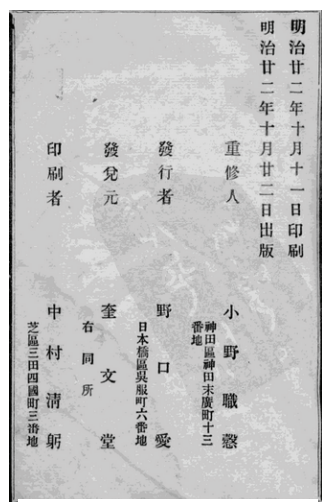 明治廿二年十月十一日印刷
明治廿二年十月廿二日出版
重修人 小野職愨
神田區神田末廣町十三番地
發行者 野口愛
日本橋區吳服町六番地
發兌元 奎文堂
右同所
印刷者 中村清躬
芝區三田四國町三番地